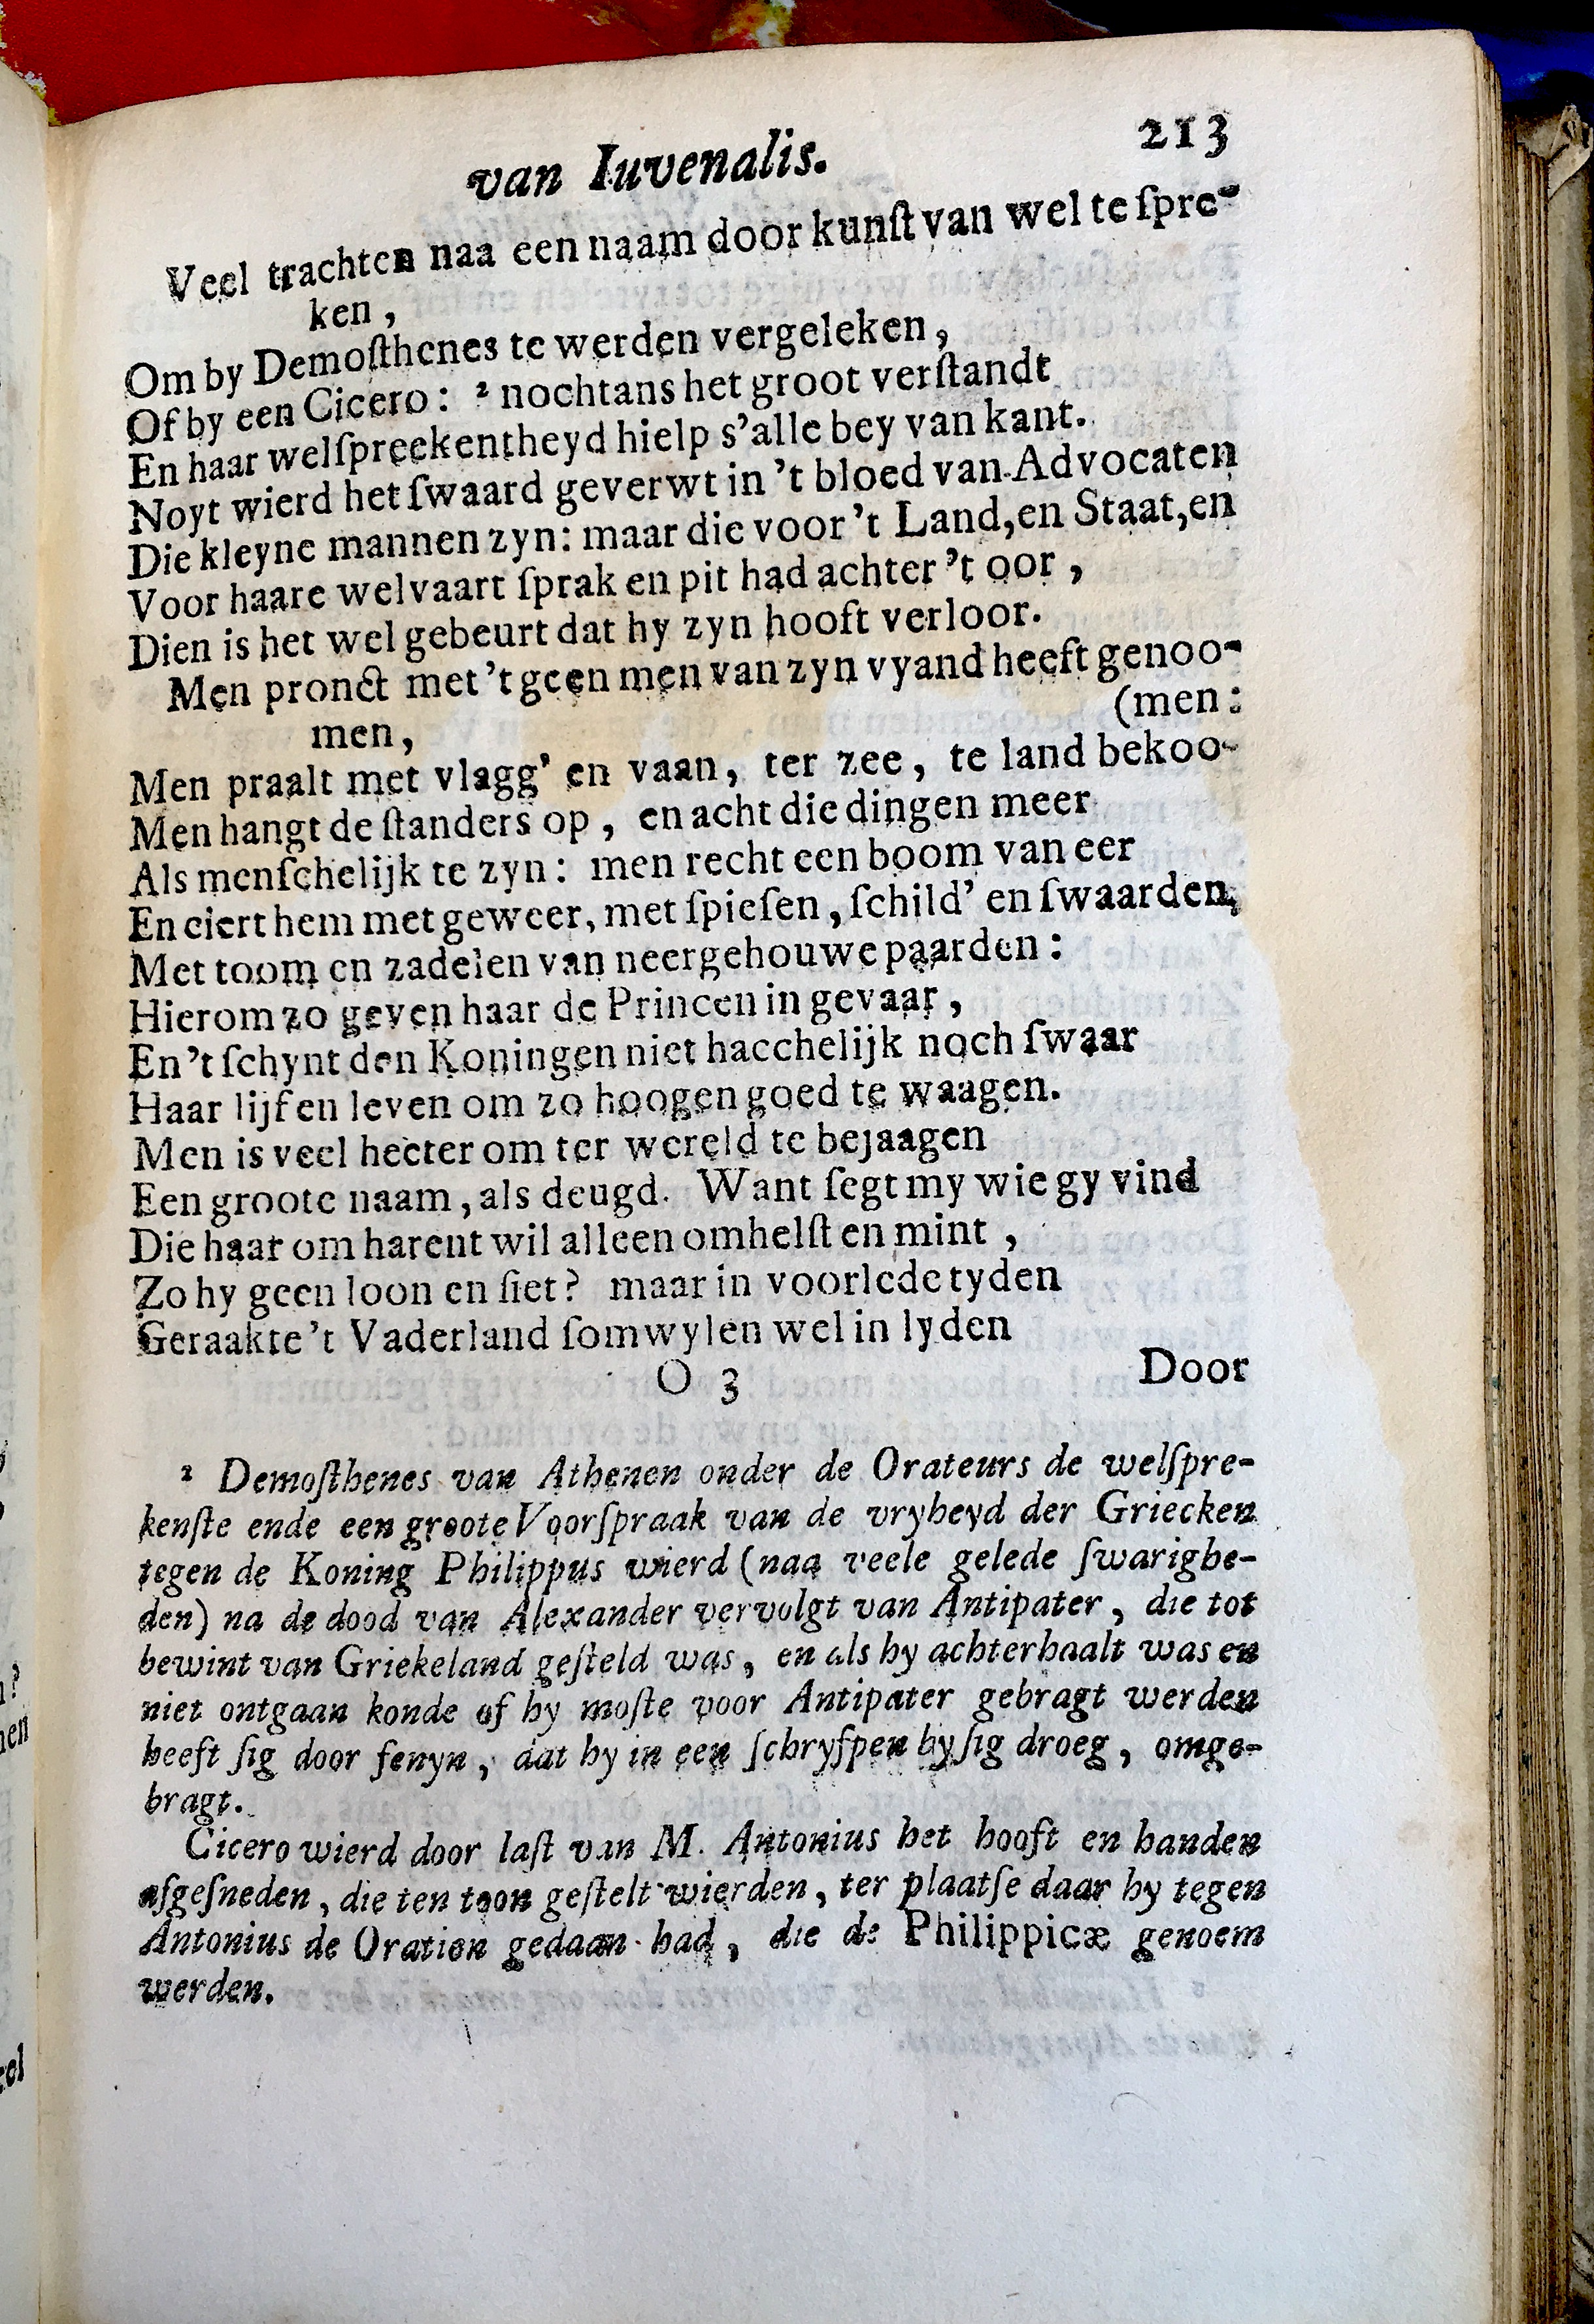 van Iuvenalis. 213
Veel trachten naa een naam door kunſt van wel te ſpre-
ken,
Om by Demoſthenes te werden vergeleken,
Of by een Cicero: ² nochtans het groot verſtandt
En haar welſpreekentheyd hielp s'alle bey van kant.
Noyt wierd het ſwaard geverwt in 't bloed van Advocaten
Die kleyne mannen zyn: maar die voor 't Land, en Staat, en
Voor haare welvaart ſprak en pit had achter 't oor,
Dien is het wel gebeurt dat hy zyn hooft verloor.
Men pronct met 't geen men van zyn vyand heeft genoo-
men,
(men:
Men praalt met vlagg' en vaan, ter zee, te land bekoo-
Men hangt de ſtanders op, en acht die dingen meer
Als menſchelijk te zyn: men recht een boom van eer
En ciert hem met geweer, met ſpieſen, ſchild' en ſwaarden,
Met toom en zadelen van neergehouwe paarden:
Hierom zo geven haar de Princen in gevaar,
En 't ſchynt den Koningen niet hacchelijk noch ſwaar
Haar lijf en leven om zo hoogen goed te waagen.
Men is veel heeter om ter wereld te bejaagen
Een groote naam, als deugd. Want ſegt my wie gy vind
Die haar om harent wil alleen omhelſt en mint,
Zo hy geen loon en ſiet? maar in voorlede tyden
Geraakte 't Vaderland ſomwylen wel in lyden
O 3 Door
² Demoſthenes van Athenen onder de Orateurs de welſpre-
kenſte ende een groote Voorſpraak van de vryheyd der Griecken
tegen de Koning Philippus wierd (naa veele gelede ſwarighe-
den) na de dood van Alexander vervolgt van Antipater, die tot
bewint van Griekeland geſteld was, en als hy achterhaalt was en
niet ontgaan konde of hy moſte voor Antipater gebragt werden
heeft ſig door fenyn, dat hy in een ſchryfpen by ſig droeg, omge-
bragt.
Cicero wierd door laſt van M. Antonius het hooft en handen
afgeſneden, die ten toon geſtelt wierden, ter plaatſe daar hy tegen
Antonius de Oration gedaan had, die de Philippicæ genoem
werden.